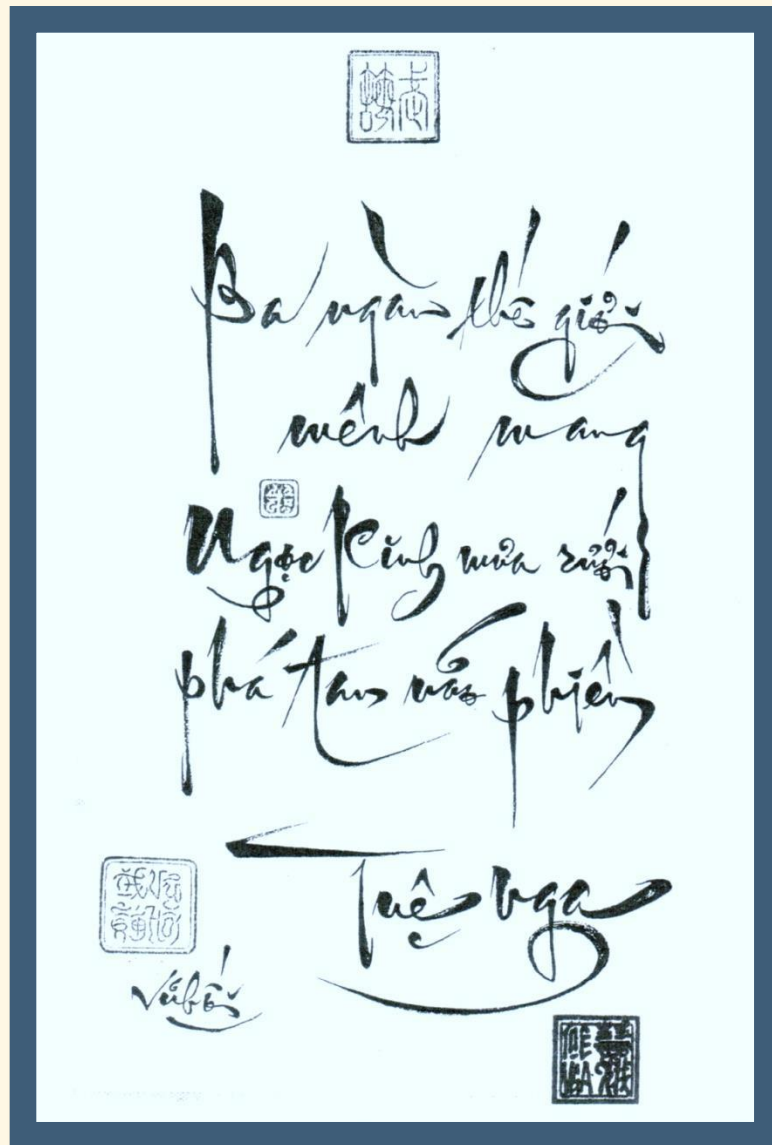 Ba ngàn thế giới
mênh mang
Ngọc Kinh mưa rưới
phá tan não phiền
Tuệ Nga
Vũ Hối
TUỆ
NGA